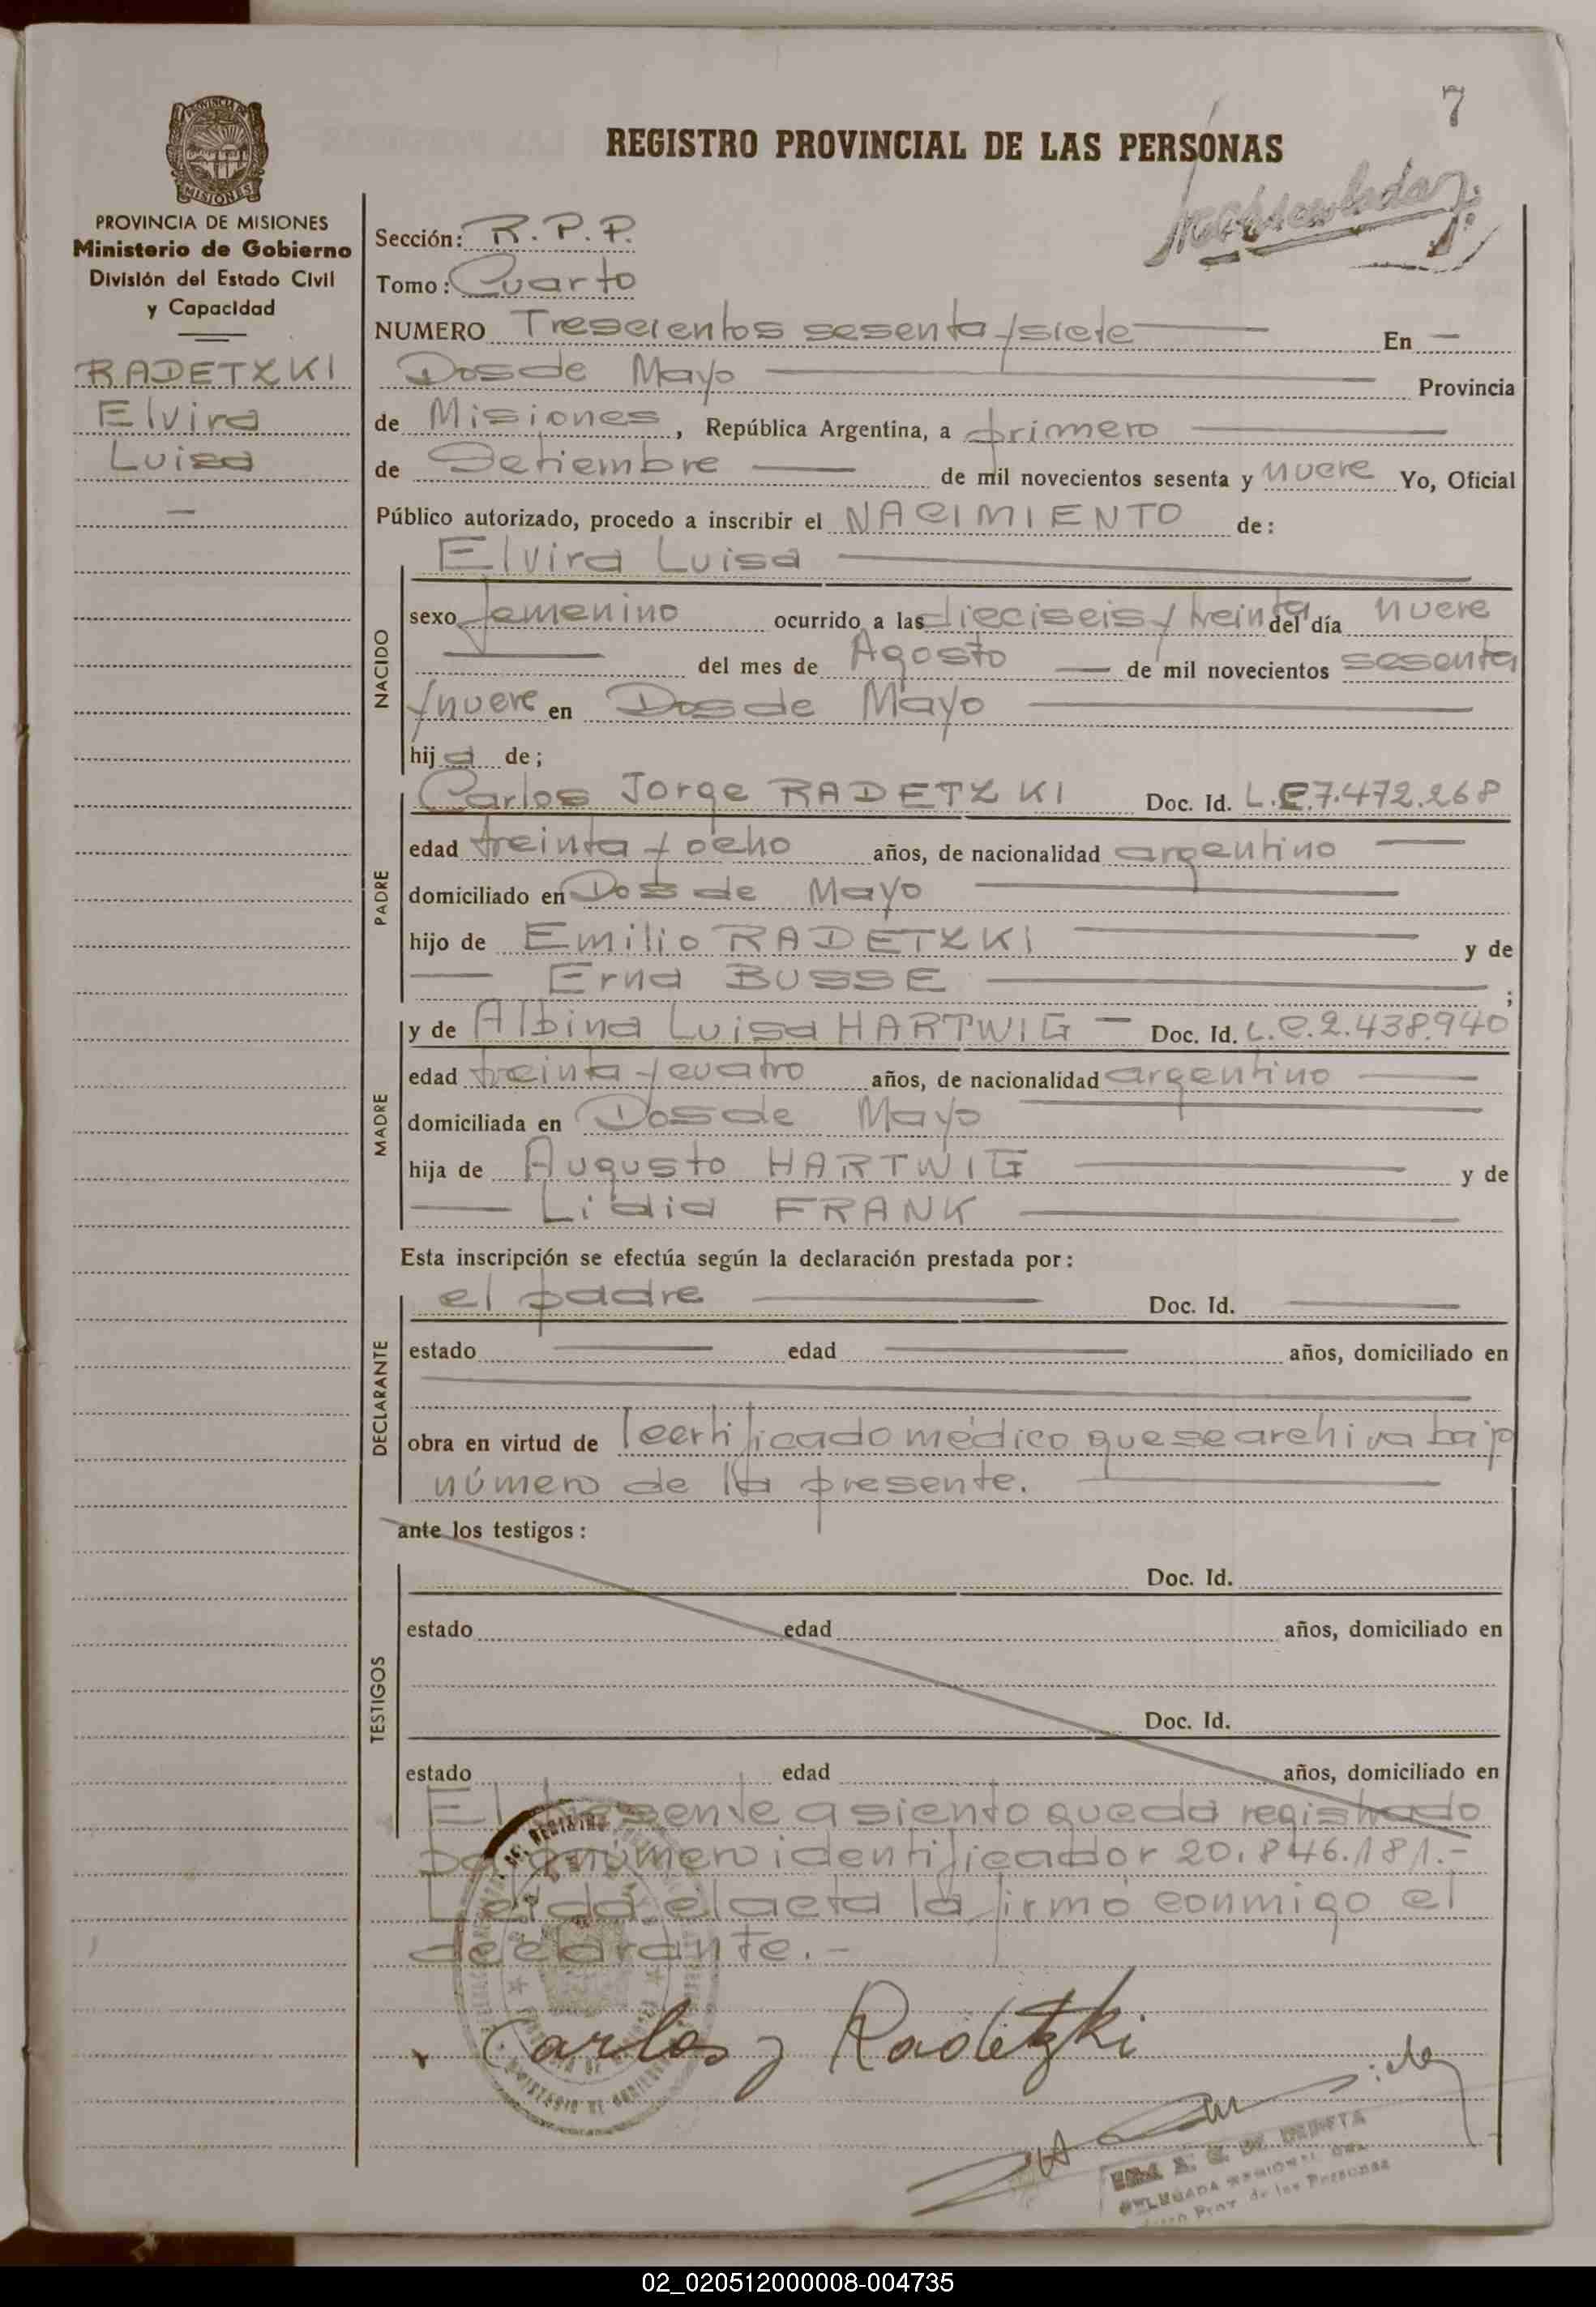 7
REGISTRO PROVINCIAL DE LAS PERSONAS
MISIONES
PROVINCIA DE MISIONES
Ministerio de Gobierno
División del Estado Civil
y Capacidad
RADETZKI
Elvira
Luisa
Sección: R.P.P.
Tomo: Cuarto
NUMERO Trescientos sesenta y siete En
Dos de Mayo Provincia
de Misiones, República Argentina, a primero
de Setiembre de mil novecientos sesenta y nueve Yo, Oficial
Público autorizado, procedo a inscribir el NACIMIENTO de:
Elvira Luisa
NACIDO
sexo femenino ocurrido a las dieciseis y treinta del día nueve
del mes de Agosto de mil novecientos sesenta
y nueve en Dos de Mayo
hija de;
PADRE
Carlos Jorge RADETZKI Doc. Id. L.E.7.472.268
edad treinta y ocho años, de nacionalidad argentino
domiciliado en Dos de Mayo
hijo de Emilio RADETZKI y de
Erna BUSSE ;
MADRE
y de Albina Luisa HARTWIG Doc. Id. L.C.2.438.940
edad treinta y cuatro años, de nacionalidad argentino
domiciliada en Dos de Mayo
hija de Augusto HARTWIG y de
Lidia FRANK
Esta inscripción se efectúa según la declaración prestada por:
DECLARANTE
el padre Doc. Id.
estado edad años, domiciliado en
obra en virtud de certificado médico que se archiva bajo
número de la presente.
ante los testigos:
TESTIGOS
Doc. Id.
estado edad años, domiciliado en
Doc. Id.
estado edad años, domiciliado en
El presente asiento queda registrado
bajo número identificador 20.846.181.-
Leída el acta la firmó conmigo el
declarante.-
Carlos J Radetzki
DELEGADA REGIONAL DEL
Prov. de las Personas
02_020512000008-004735